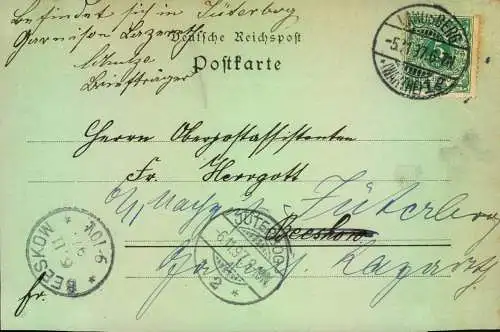 Befindet sich in Jüterbog
Garnison Lazareth
Schulze
Briefträger
Deutsche Reichspost
Postkarte
LANDSBERG
-5.11.97.6-7N.
(WARTHE)
Herrn Oberpostassistenten
Fr. Herrgott
Jüterbog
Beeskow
Lazareth
fr.
JÜTERBOG
6.11.97
2
BEESKOW